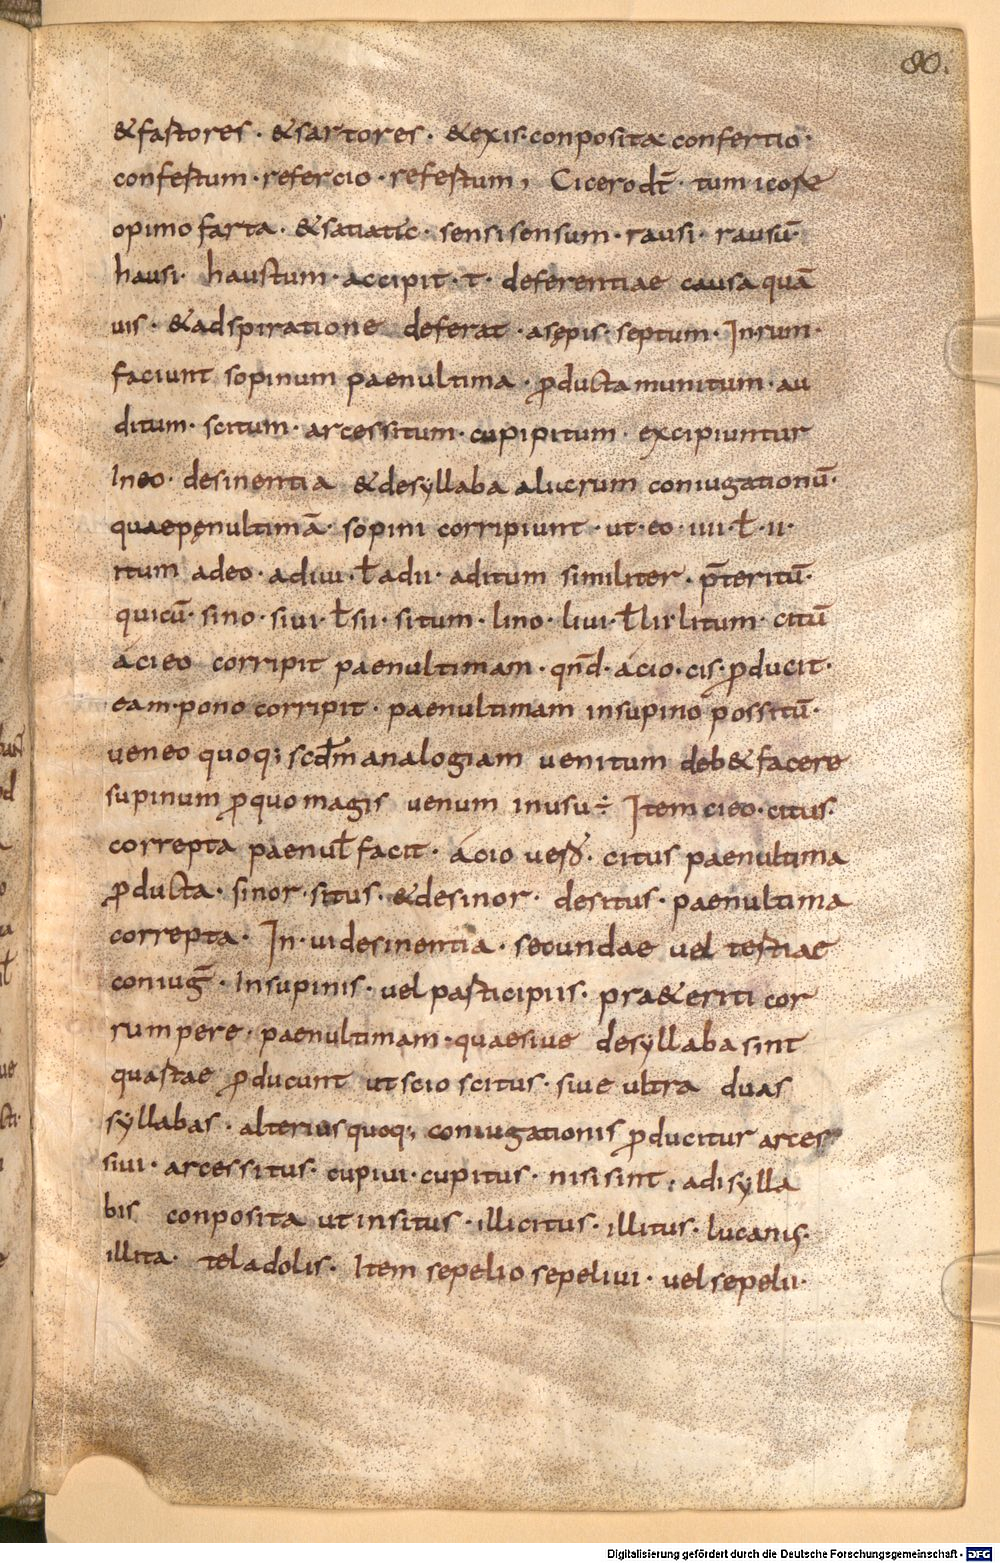 80.
&fartores · &sartores · &exis· conposita confertio ·
confertum · refercio · refertum, Cicero dt̄ · tum icore
opimo farta · &satiatic · sensi sensum · rausi · rausū·
hausi · haustum · accipit · t · deferentiae causa quā
uis · &adspiratione deferat · asępis · septum · Inrum ·
faciunt sopinum paenultima · ꝓducta munitum · au
ditum · scitum · arcessitum · cupipitum · excipiuntur
Ineo · desinentia &desyllaba alucrum coniugationū·
quaepęnultimā · sopini corripiunt · ut · eo · iui · ł · ii ·
itum adeo · adiui · ł adii · aditum similiter · p̄teritū·
quicū· sino · siui · ł sii · situm · lino · liui · ł lir litum · citū
acieo corripit paenultimam · qn̄d · acio · cis · ꝓducit ·
eam · pono corripit · paenultimam insupino possitū·
ueneo quoq; scd̄m analogiam uenitum deb&facere
supinum ꝓquo magis uenum inusu ÷ Item cieo · citus ·
correpta paenuł facit · acio ues̄o · citus paenultima
ꝓducta · sinor · situs · &desinor · desitus · paenultima
correpta · In · ui desinentia · secundae uel tertiae
coniuḡ · Insupinis · uel participiis · pra&eriti cor
rumpere · paenultimam · quaesiue desyllaba sint
quartae ꝓducunt ut scio scitus · siue ultra duas
syllabas · alterius quoq; coniugationis ꝓducitur arces
siui · arcessitus · cupiui · cupitus · nisi sint, adisylla
bis conposita ut insitus · illicitus · illitus · lucanis ·
illita · tela dolis · Item sepelio sepeliui · uel sepelii ·
Digitalisierung gefördert durch die Deutsche Forschungsgemeinschaft - DFG